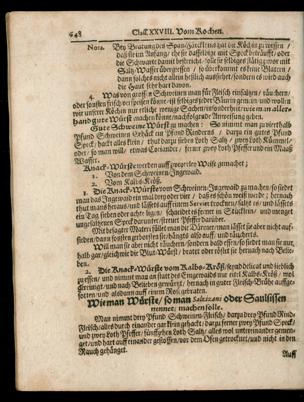 648 Class. XXVIII. Vom Kochen.
Nota. Bey Bratung des Span-Färckleins hat die Köchin zu wissen /
daß sie im Anfang / ehe sie dasselbige mit Speck beträufft / oder
die Schwarte damit bestreicht / wie sie selbiges stätig zuvor mit
Saltz-Wasser
dann solches nicht allein heßlich aussiehet / sondern es wird auch
die Haut sehr hart davon.
4. Was von grossen Schweinen man für Fleisch einsaltzen / räuchern /
oder sonsten frisch verspeisen könne / ist selbiges jeder Bäurin gemein / und wollen
wir unserer Köchin nur etliche wenige Sachen / insonderheit / wie man aller-
hand gute Würst machen könne / nachfolgende Anweisung geben.
Gute Schweine-Würst zu machen: So nimmt man zu vierthalb
Pfund Schweinen Gehäck ein Pfund Rindernes / darzu ein gutes Pfund
Speck / hackt alles klein / thut darzu sieben Loth Saltz / zwey Loth Kümmel /
oder / so man will / etwas Coriander / ferner zwey Loth Pfeffer und ein Maaß
Wasser.
Knack-Würste werden auff zweyerley Weise gemachet;
1. Von dem Schweinen-Ingeweid.
2. Vom Kalbs-Kröß.
1. Die Knack-Würste vom Schweinen-Ingeweid zu machen / so siedet
man das Ingeweid ein mal
thut man es heraus / und lässet
ein Tag sieben oder acht ligen / schneidet es ferner in Stücklein / und menget
ungestossenen Speck darunter / ferner Pfeffer darüber.
Mit besagter Materi füllet man die Därmer / man lässet sie aber nicht auf-
sieden / dann sonsten zerborsten sie / hängts also auff / und räucherts.
Will man sie aber nicht räuchern / sondern bald essen / so siedet man sie nur /
halb gar / gleichwie die Blut-Würst / bratet oder röstet sie hernach nach Belie-
ben.
2. Die Knack-Würste von Kalbs-Kröß / seynd delicat und lieblich
zu essen / und nimmt man an statt des Ingeweids nur eitel Kalbs-Kröß / wol
gereinigt / und nach Belieben gewürtzt / hernach in guter Fleisch-Brühe auffge-
sotten / und alsdann auff einem Rost gebraten.
Wie man Würste / so man Salsizani oder Saulsissen
nennet / machen solle.
Man nimmt drey Pfund Schweinen-Fleisch / darzu drey Pfund Rind-
Fleisch / alles durch einander gar klein gehackt / darzu ferner zwey Pfund Speck /
und zwey Loth Pfeffer / fünffzehen Loth Saltz / alles wol untereinander gemen-
get / und hart auff einander gestossen / vor dem Ofen getrocknet / und nicht in den
Rauch gehänget.
Auff